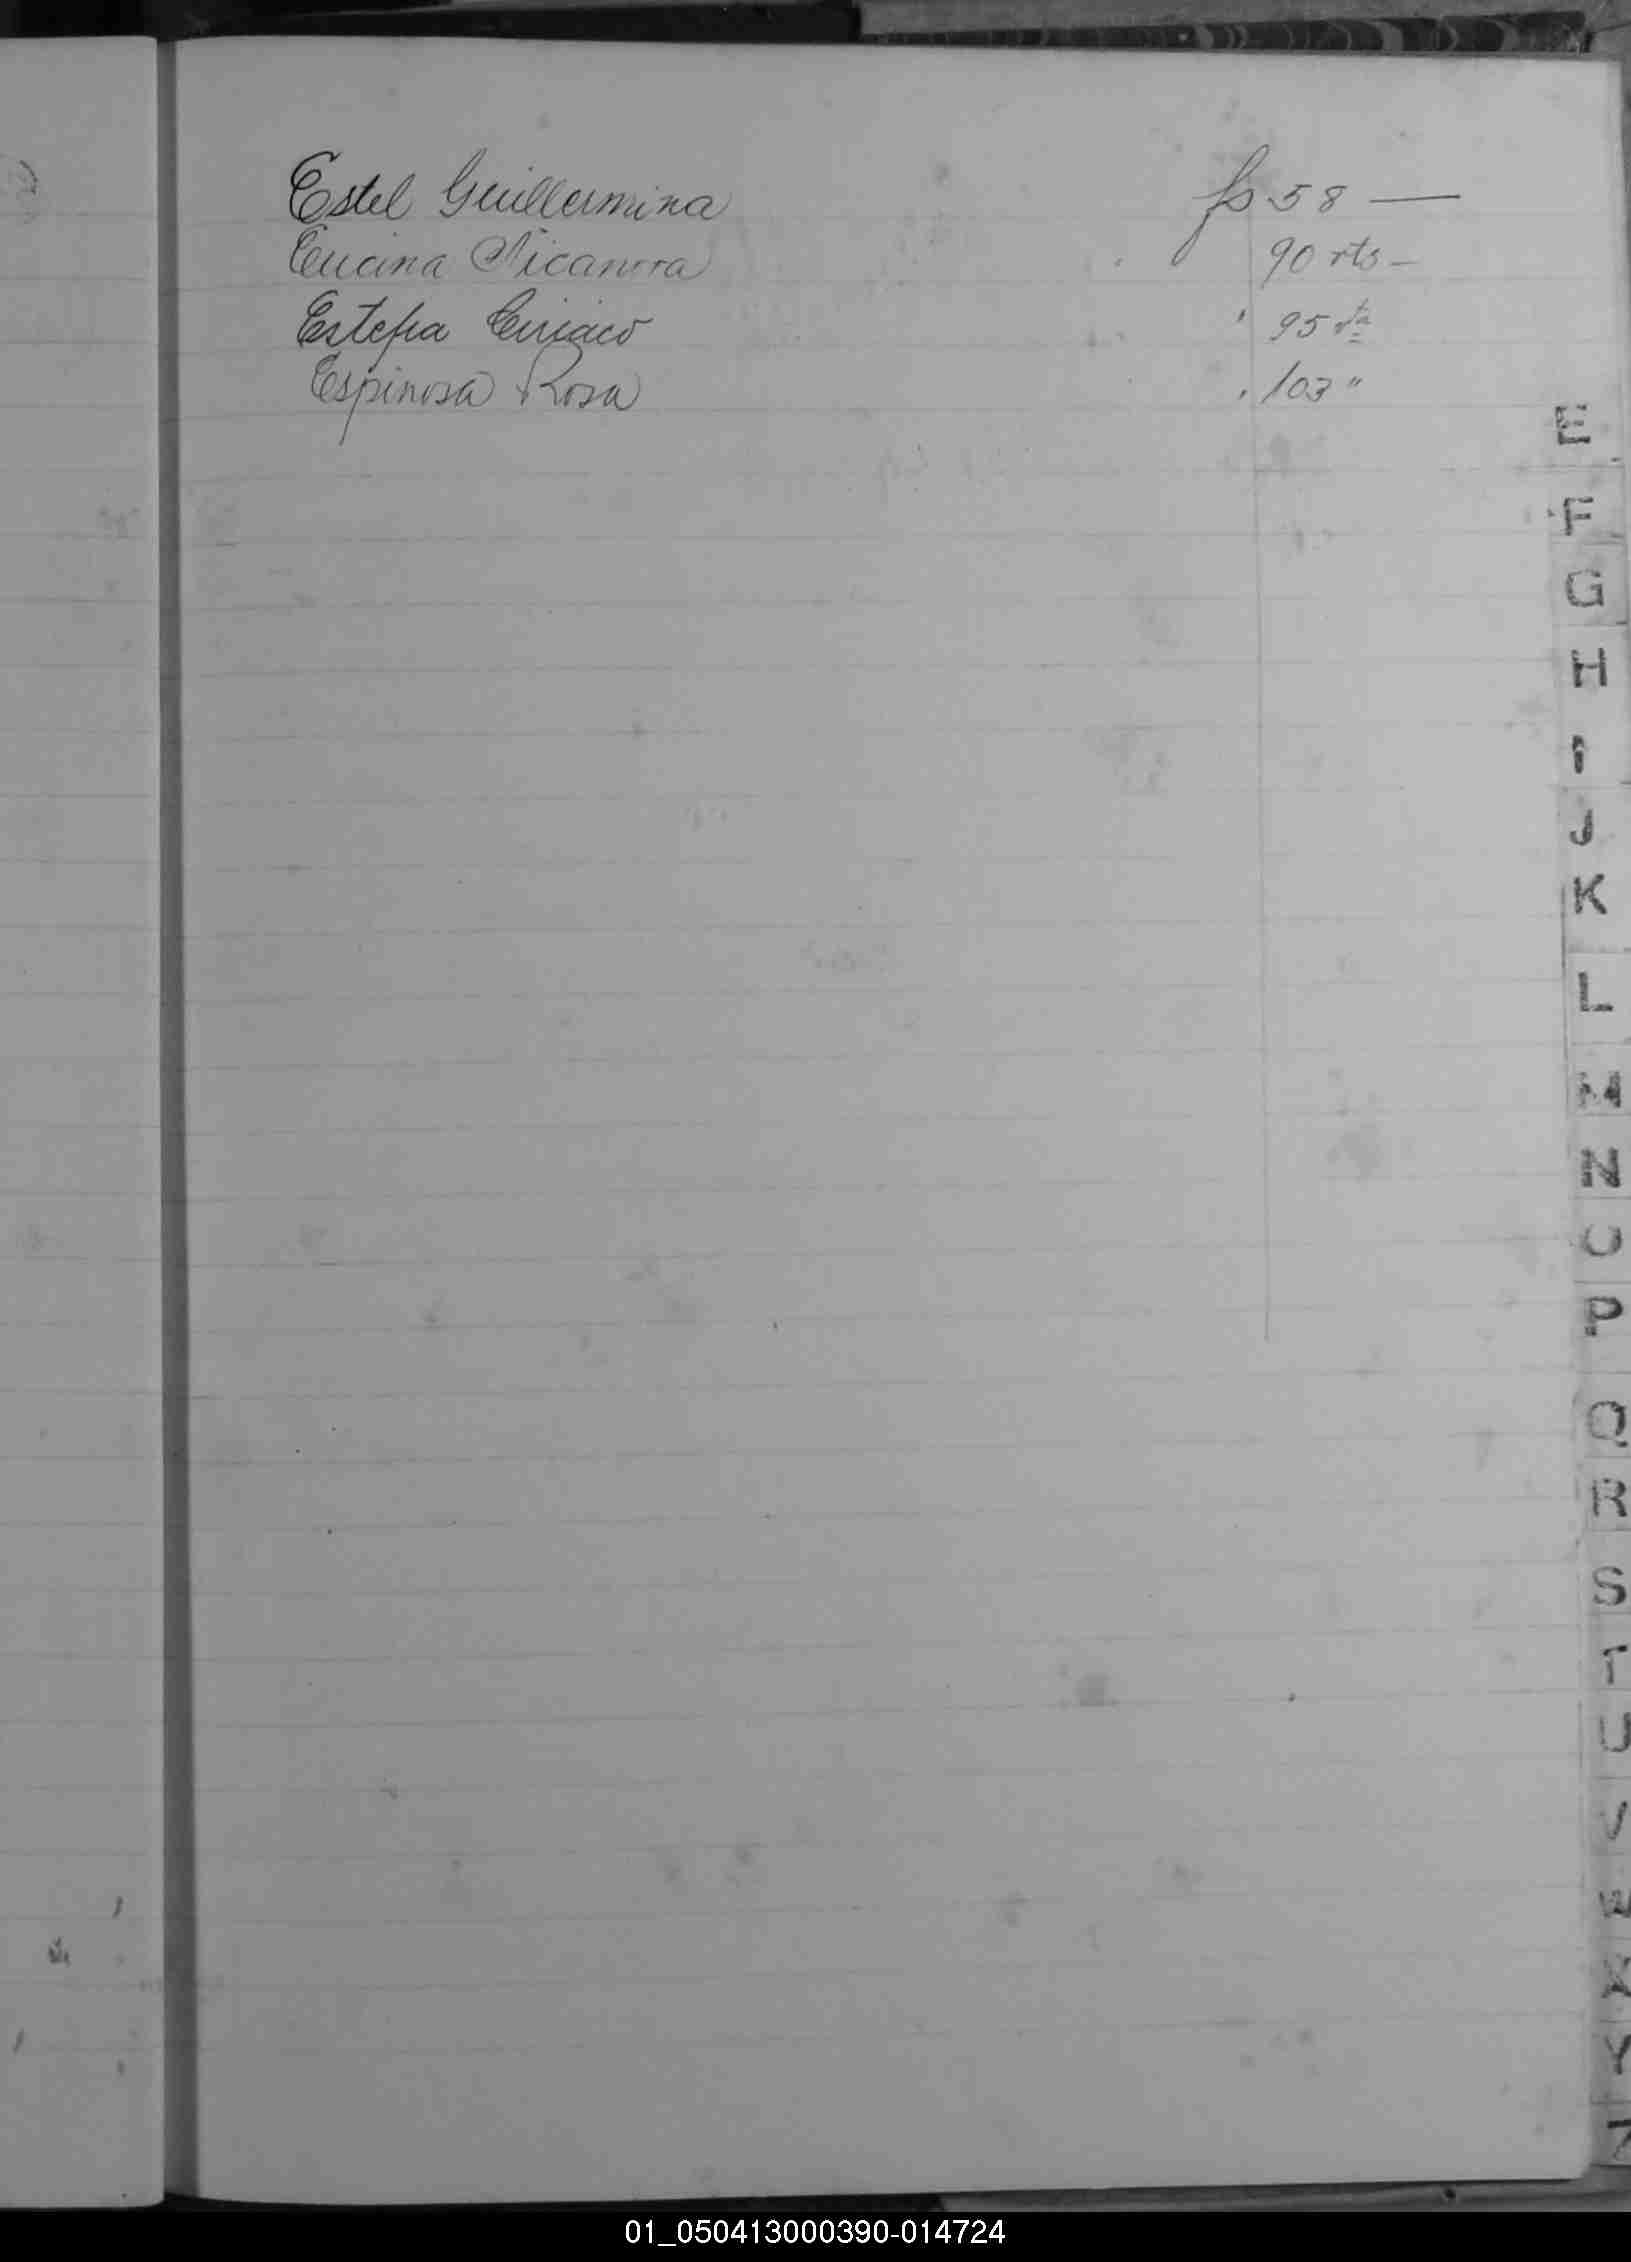 Estel Guillermina fs 58 —
Encina Nicanora 90 vta –
Estefia Ciriaco " 95 vta
Espinosa Rosa " 103 "
E
F
G
H
I
J
K
L
M
N
O
P
Q
R
S
T
U
V
W
X
Y
Z
01_050413000390-014724